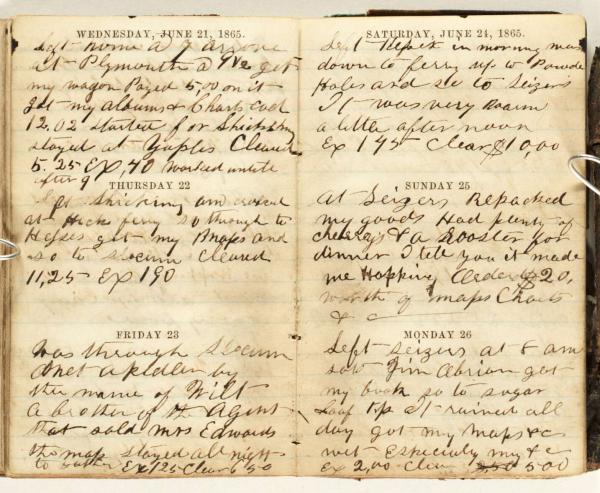 WEDNESDAY, JUNE 21, 1865.
Left home at 7 arrove
at Plymouth a 9 1/2 got
my wagon Payed 5,00 on it
got my albums & Charts cost
12.02 started for Shickshiny
stayed at Yaples Cleared
5.25 Ex ,40 worked untile
after 9
THURSDAY 22
at Shickiny am crossed
at Hick ferry so through to
Hesses got my Maps and
so to Slocum cleared
11,25 Ex 190
FRIDAY 23
Was through Slocum
Met a pedler by
the name of Wilt
A brother of H. Agent
that sold Mrs Edwards
the map stayed all night
to Ex 125 Clear 6 50
SATURDAY, JUNE 24, 1865.
Left in morning was
down to ferry up to Powder
Holes and so to Seizers
It was very warm
a little after noon
Ex 145 Clear $10,00
SUNDAY 25
At Seizers Repacked
my goods Had plenty of
cherrys & a Rooster for
dinner I tele you it made
me Hopking Order $20,
worth of maps Charts
& c
MONDAY 26
Left Seizers at 8 am
saw Jim got
my book so to sugar
Loaf Tp It rained all
day got my maps & c
wet Especialy my & c
Ex 2,00 Clear 5 00